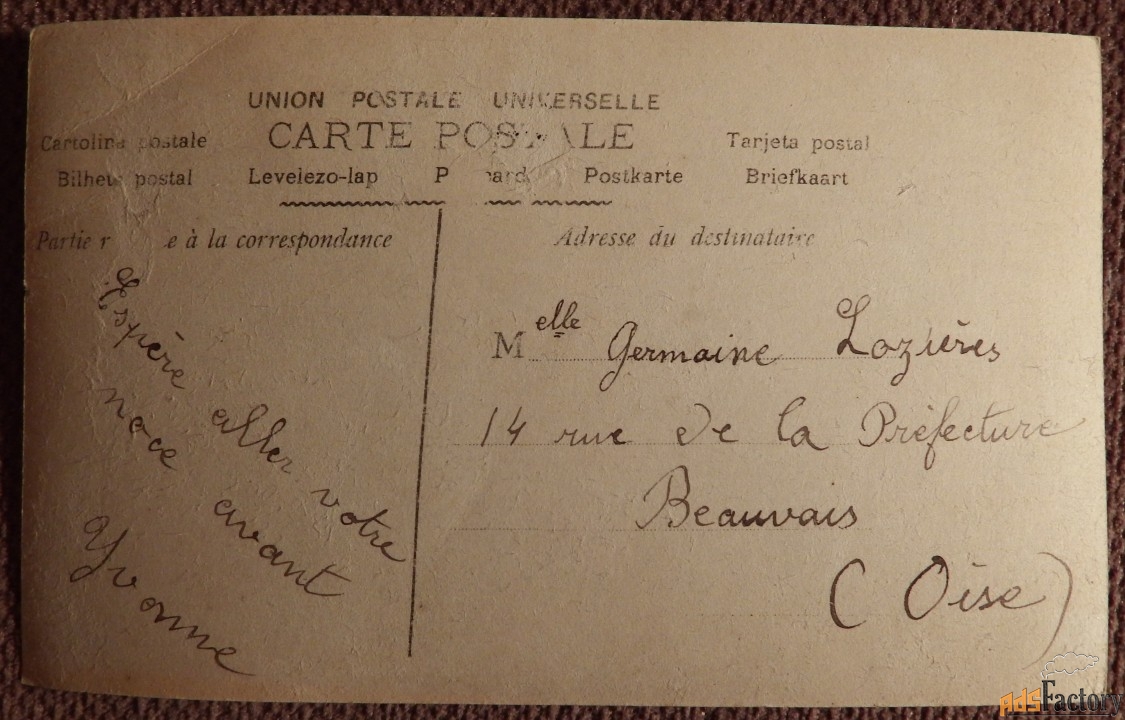 UNION POSTALE UNIVERSELLE
CARTE POSTALE
Cartolina postale
Tarjeta postal
Bilhete postal
Levelezo-lap
Postkarte
Briefkaart
Partie à la correspondance
Adresse du destinataire
Espère aller votre
noce avant
Yvonne
Melle Germaine Lozières
14 rue de la Préfecture
Beauvais
(Oise)
AdsFactory